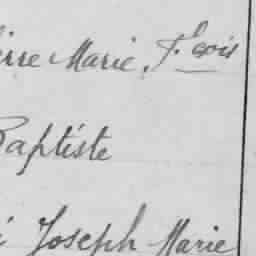 ierre Marie, F.çois
Baptiste
i Joseph Marie